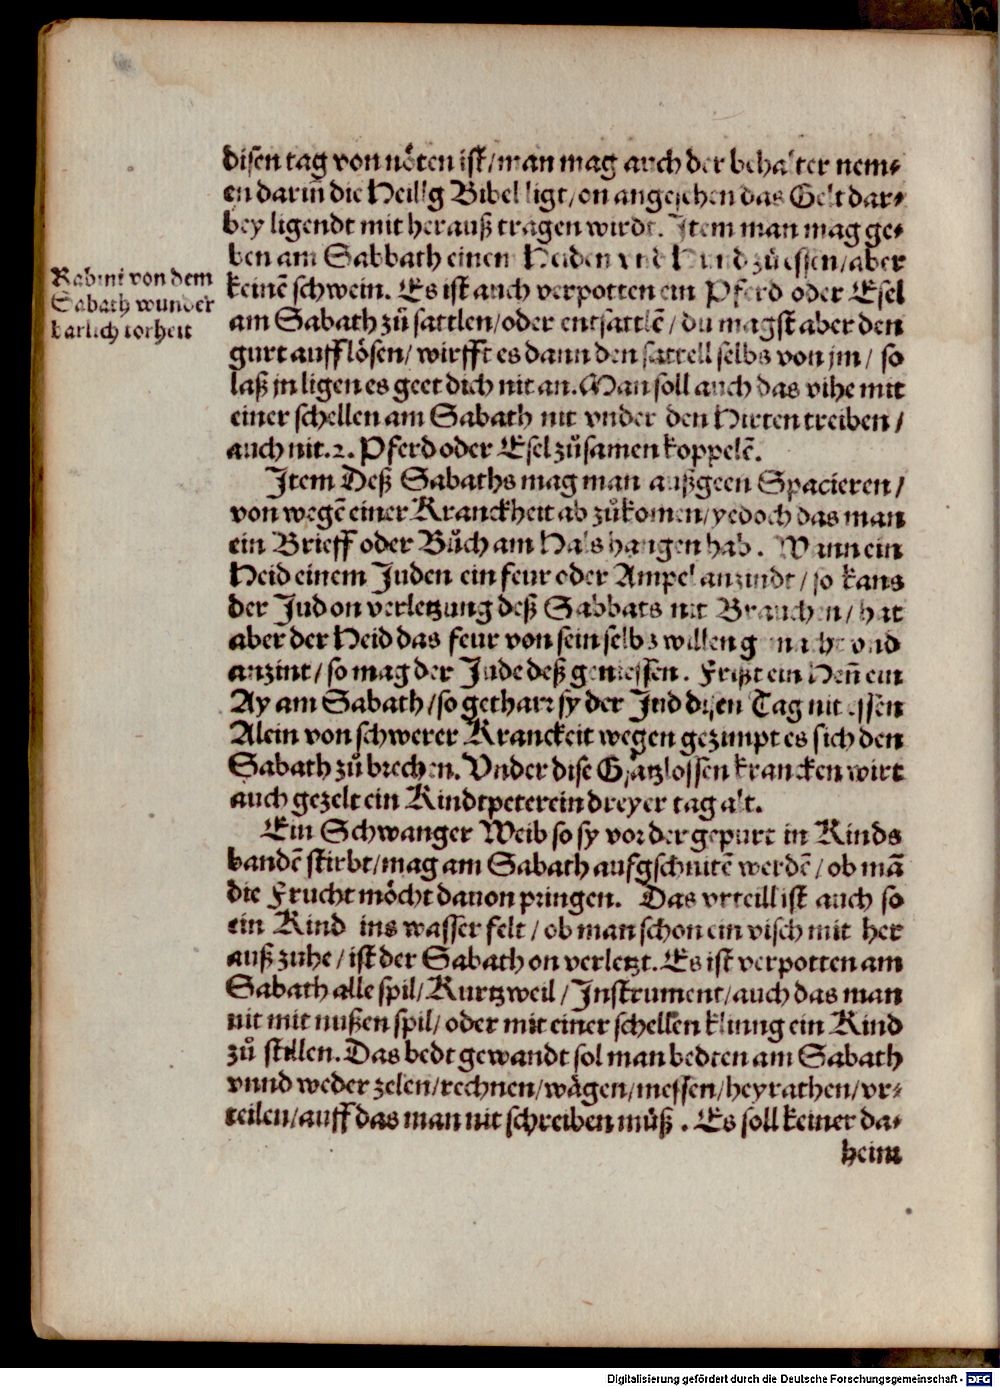 disen tag von nöten ist/man mag auch der behalter nem⸗
en dariñ die Heilig Bibel ligt/on angesehen das Gelt dar⸗
bey ligendt mit herauß tragen wirdt. Item man mag ge⸗
ben am Sabbath einen Heiden vnd Hund zůessen/aber
keinē schwein. Es ist auch verpotten ein Pferd oder Esel
am Sabath zů sattlen/oder entsattlē/du magst aber den
gurt aufflösen/wirfft es dann den sattell selbs von jm/ so
laß jn ligen es geet dich nit an. Man soll auch das vihe mit
einer schellen am Sabath nit vnder den Hirten treiben/
auch nit.2. Pferd oder Esel zůsamen koppelē.
Rabini von dem
Sabath wunder
barlich torheit
Item Deß Sabaths mag man außgeen Spacieren/
von wegē einer Kranckheit ab zůkomen/yedoch das man
ein Brieff oder Bůch am Hals hangen hab. Wann ein
Heid einem Juden ein feur oder Ampel anzindt/so kans
der Jud on verletzung deß Sabbats nit Brauchen/hat
aber der Heid das feur von sein selbs willen vnd
anzint/so mag der Jude deß geniessen. Frißt ein Henñ ein
Ay am Sabath/so getharr sy der Jud disen Tag nit essen
Alein von schwerer Kranckeit wegen gezimpt es sich den
Sabath zů brechen. Vnder dise krancken wirt
auch gezelt ein Kindtpeterein dreyer tag alt.
Ein Schwanger Weib so sy vor der gepurt in Kinds
bandē stirbt/mag am Sabath aufgschnitē werdē/ob mā
die Frucht möcht dauon pringen. Das vrteill ist auch so
ein Kind ins wasser felt/ob man schon ein visch mit her
auß zuhe/ist der Sabath on verletzt. Es ist verpotten am
Sabath alle spil/Kurtzweil/Instrument/auch das man
nit mit nußen spil/oder mit einer schellen klinng ein Kind
zů stillen. Das bedt gewandt sol man bedten am Sabath
vnnd weder zelen/rechnen/wägen/messen/heyrathen/vr⸗
teilen/auff das man nit schreiben můß. Es soll keiner da⸗
heim
Digitalisierung gefördert durch die Deutsche Forschungsgemeinschaft - DFG